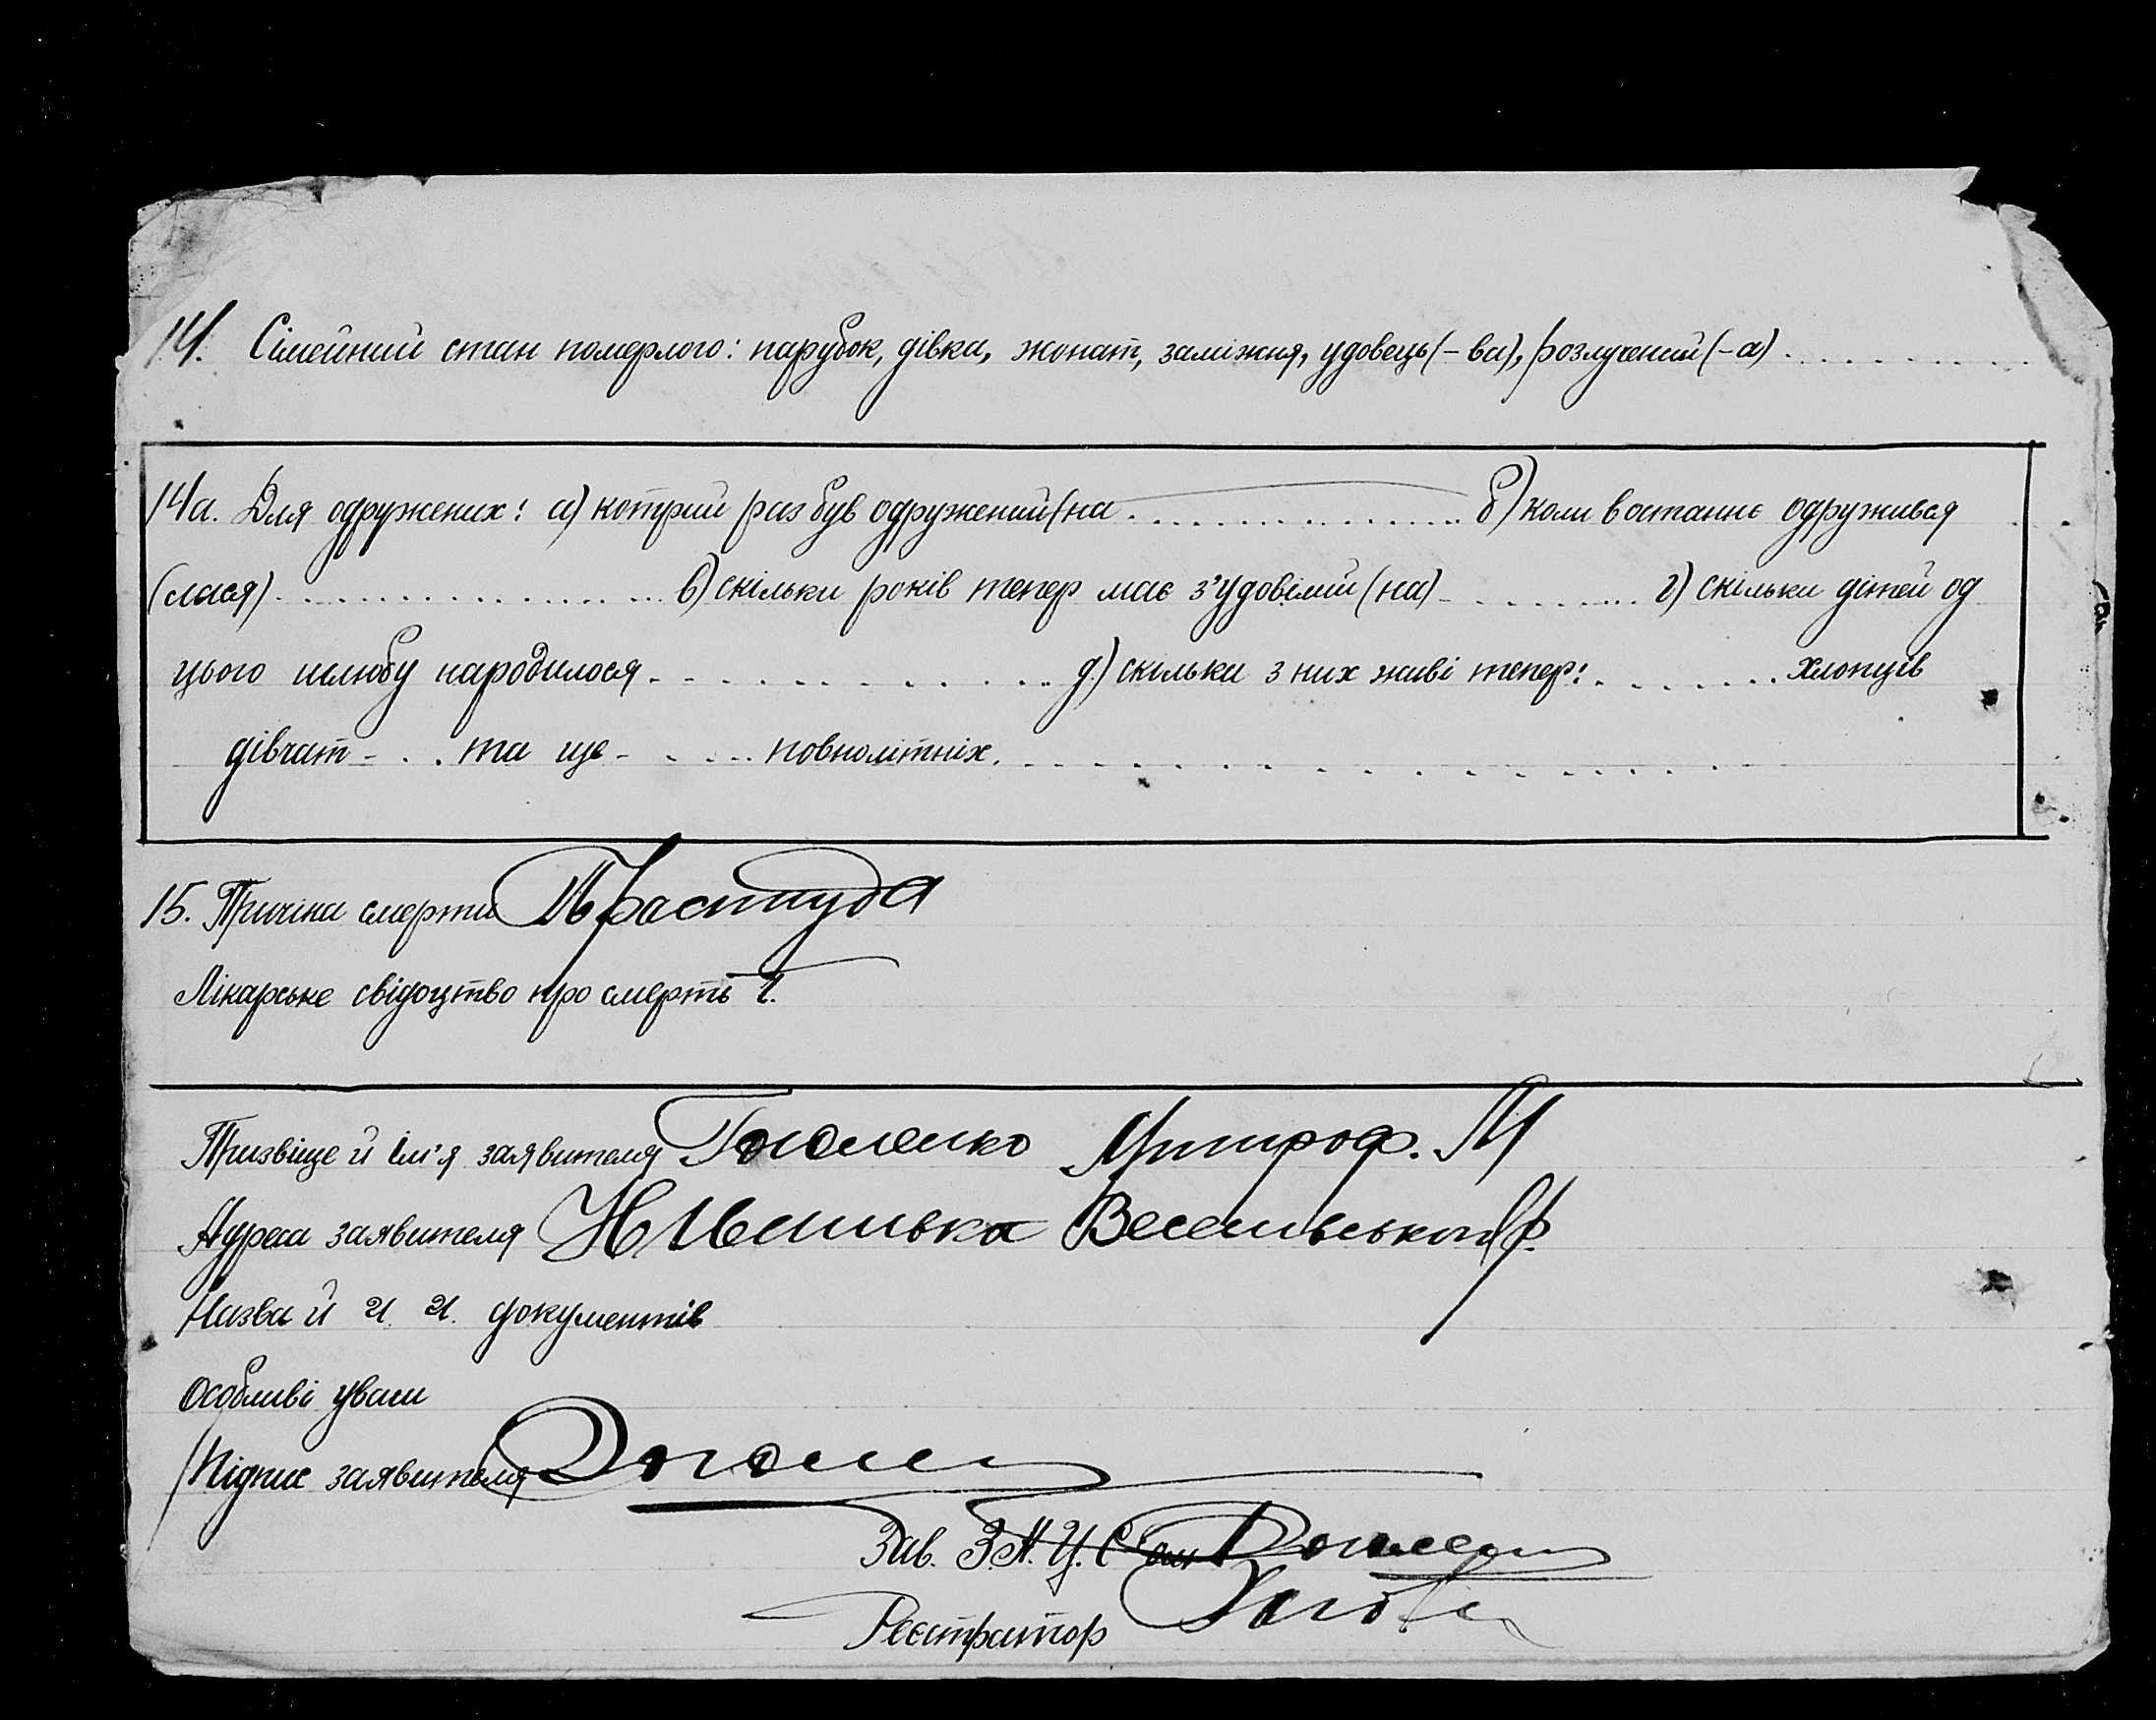 14. Сімейний стан померлого: парубок, дівка, жонат, заміжня, удовець (-ва), розлучений (-а)
14а. Для одружених: а) котрий раз був одружений (на б) коли востаннє одружився
(лася) в) скільки років тепер має з'удовілий (на) г) скільки дітей од
цього шлюбу народилося д) скільки з них живі тепер: хлопців
дівчат та ще повнолітніх.
15. Причіна смерти Прастуда
Лікарське свідоцтво про смерть Ч.
Призвіще й ім'я заявителя Митроф. М
Адреса заявителя Н Ивашвка Р.
Назва й Ч. Ч. документів
Особливі уваги
Підпис заявителя
Зав. З.А.Г.С
Реєстратор